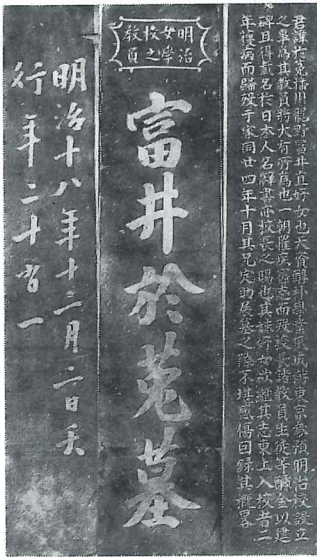 君諱於菟播州龍野富井直好女也天資醇朴學業夙成詣東京参預明治校設立
之事為其教員將大有所為也一朝罹疾齎志而歿校長諸教員生徒等醵金以建
碑且得載名於日本人名辭書亦校長之賜也其妹女欲繼其志東上入校者二
年復病而歸歿于家同廿四年十月其兄定助展墓之陰不堪感傷因録其概畧
明治
女学
校之
教員
富井於菟墓
明治十八年十二月二日夭
行年二十有一